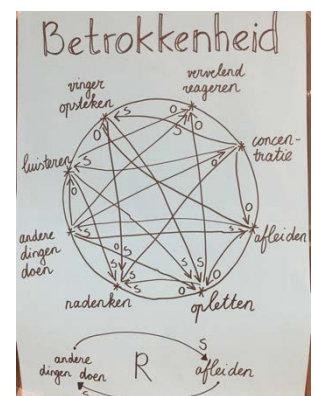 Betrokkenheid
vinger
opsteken
vervelend
reageren
concen-
tratie
luisteren
afleiden
andere
dingen
doen
nadenken
opletten
S
andere
dingen doen
R
afleiden
S